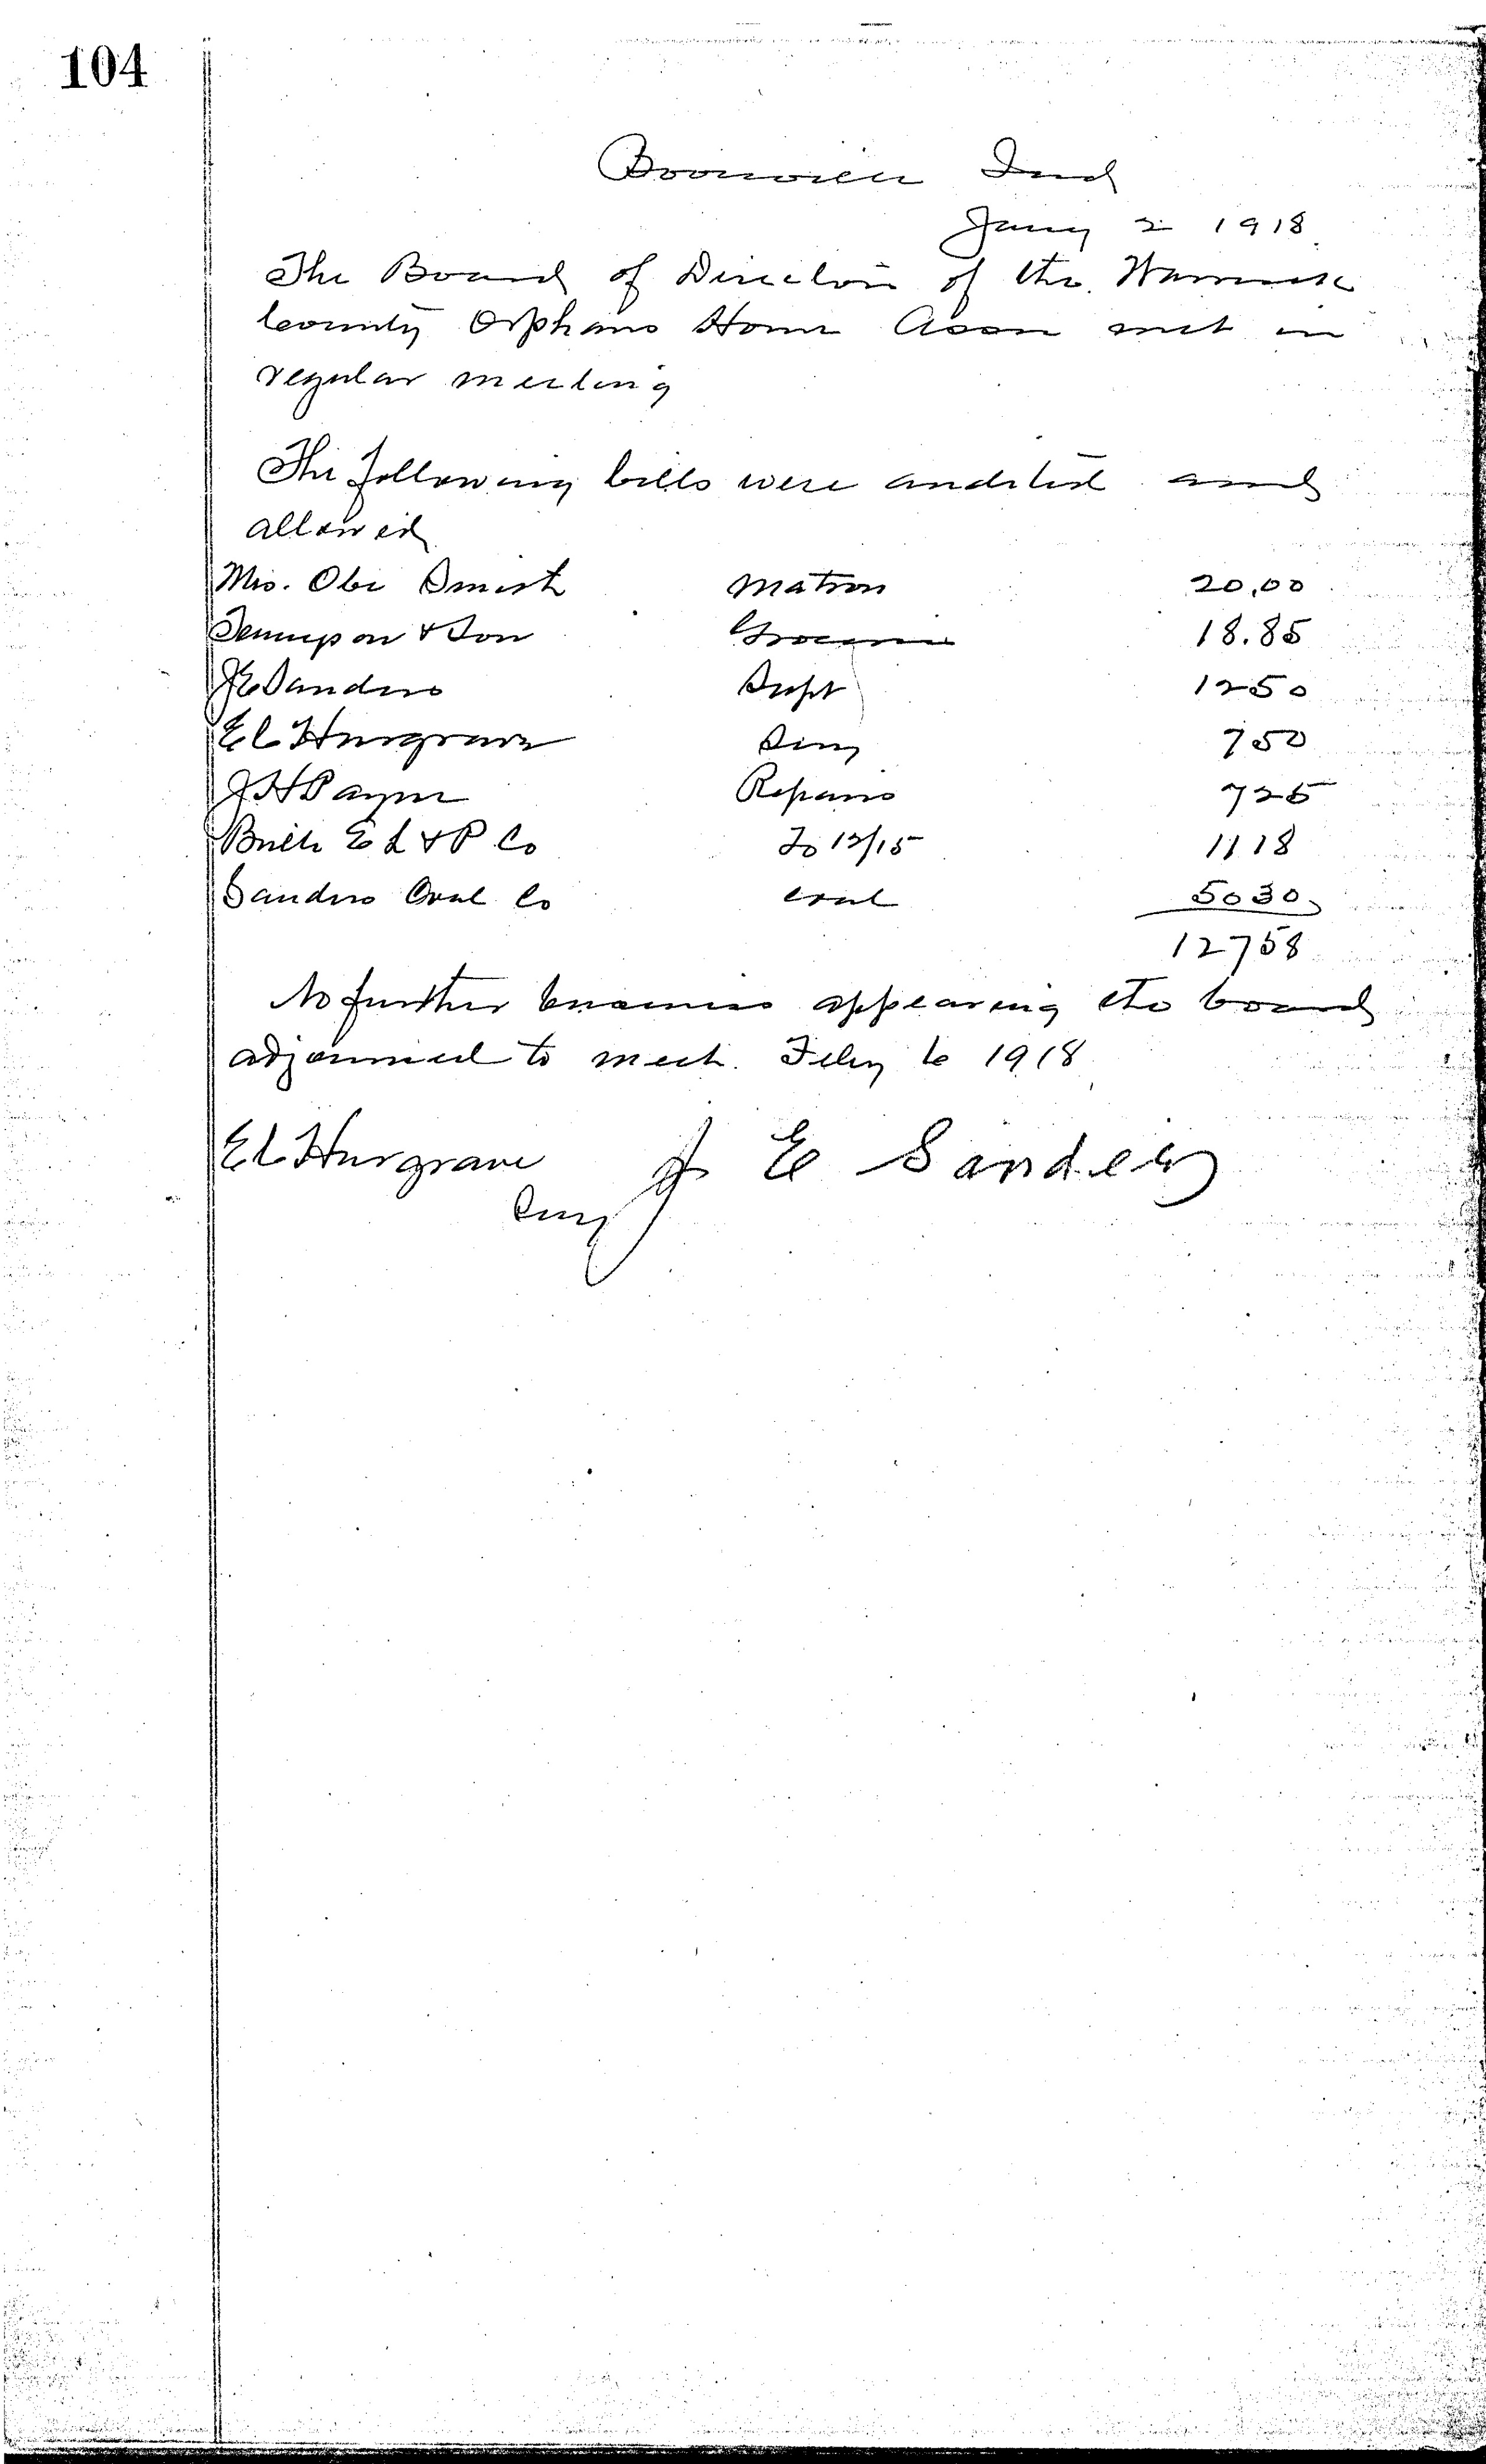 104
Boonville Ind
Jany 2 1918
The Board of Directors of the Warrick
County Orphans Home Assn met in
regular meeting
The following bills were audited and
allowed
Mrs. Obe Smith Matron 20.00
Tennyson & Son Groceries 18.85
JE Sanders Supt 1250
E C Hargrave Secy 750
J H Payne Repairs 725
Bville E L & P Co To 12/15 1118
Sanders Coal Co Coal 5030
12758
No further business appearing the board
adjourned to meet Feby 6 1918
E C Hargrave J E Sanders
Secy